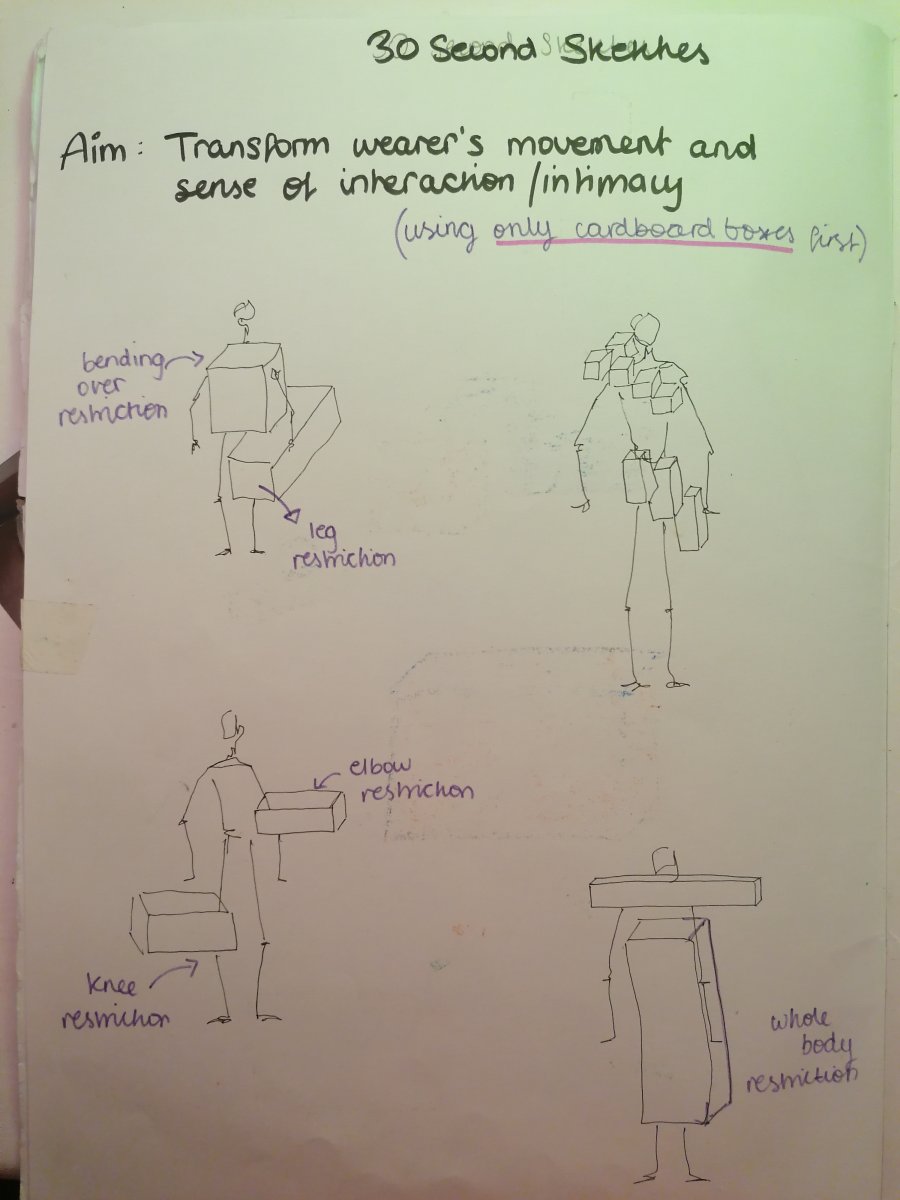 30 Second Sketches
Aim: Transform wearer's movement and
sense of interaction/intimacy
(using only cardboard boxes first)
bending
over
restriction
leg
restriction
elbow
restriction
knee
restriction
whole
body
restriction